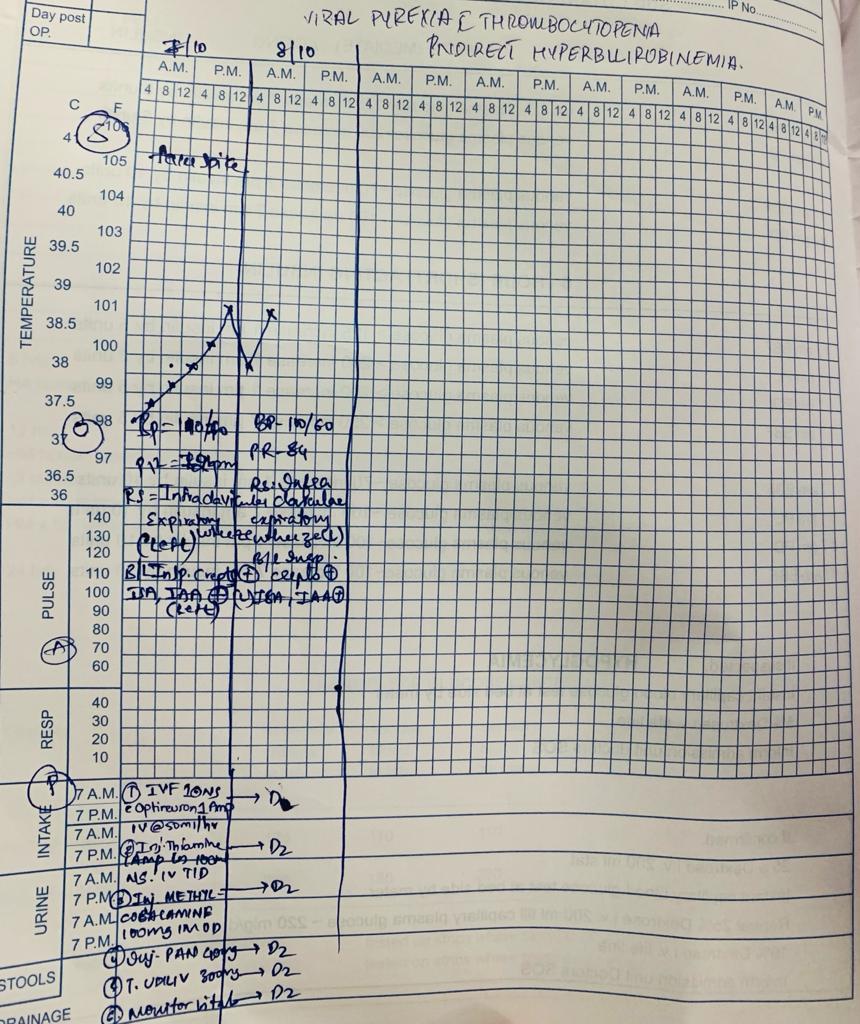 IP No.
Day post
OP.
VIRAL PYREXIA C̄ THROMBOCYTOPENIA
INDIRECT HYPERBILIROBINEMIA.
7/10 8/10
A.M. P.M. A.M. P.M. A.M. P.M. A.M. P.M. A.M. P.M. A.M. P.M. A.M. P.M.
C F 4 8 12 4 8 12 4 8 12 4 8 12 4 8 12 4 8 12 4 8 12 4 8 12 4 8 12 4 8 12 4 8 12 4 8 12 4 8 12 4 8
S 106
105
40.5
104
40
103
39.5
102
39
101
38.5
100
38
99
37.5
98
O
37
97
36.5
36
TEMPERATURE
Fever spike
BP = 110/ BP - 110/60
PR = PR - 84
RS: Infra
RS = Infraclavicular clavicular
Expiratory expiratory
(Left) wheeze wheeze (L)
B/L Insp.
B/L Insp. crepts ⊕ crepts ⊕
ISA, IAA ⊕ (L) ISA, IAA ⊕
(Left)
PULSE
140
130
120
110
100
90
80
70
60
A
RESP
40
30
20
10
P
INTAKE
7 A.M. ① IVF 1 ONS → D2
7 P.M. c̄ Optineuron 1 Amp
7 A.M. IV @ 50ml/hr
7 P.M. ② Inj. Thiamine → D2
1 Amp in 100ml
URINE
7 A.M. NS. IV TID
7 P.M. ③ Inj METHYL → D2
7 A.M. COBALAMINE
7 P.M. 100mg IM OD
④ Inj. PAN 40mg → D2
STOOLS
⑤ T. UDILIV 300mg → D2
⑥ Monitor vitals → D2
DRAINAGE